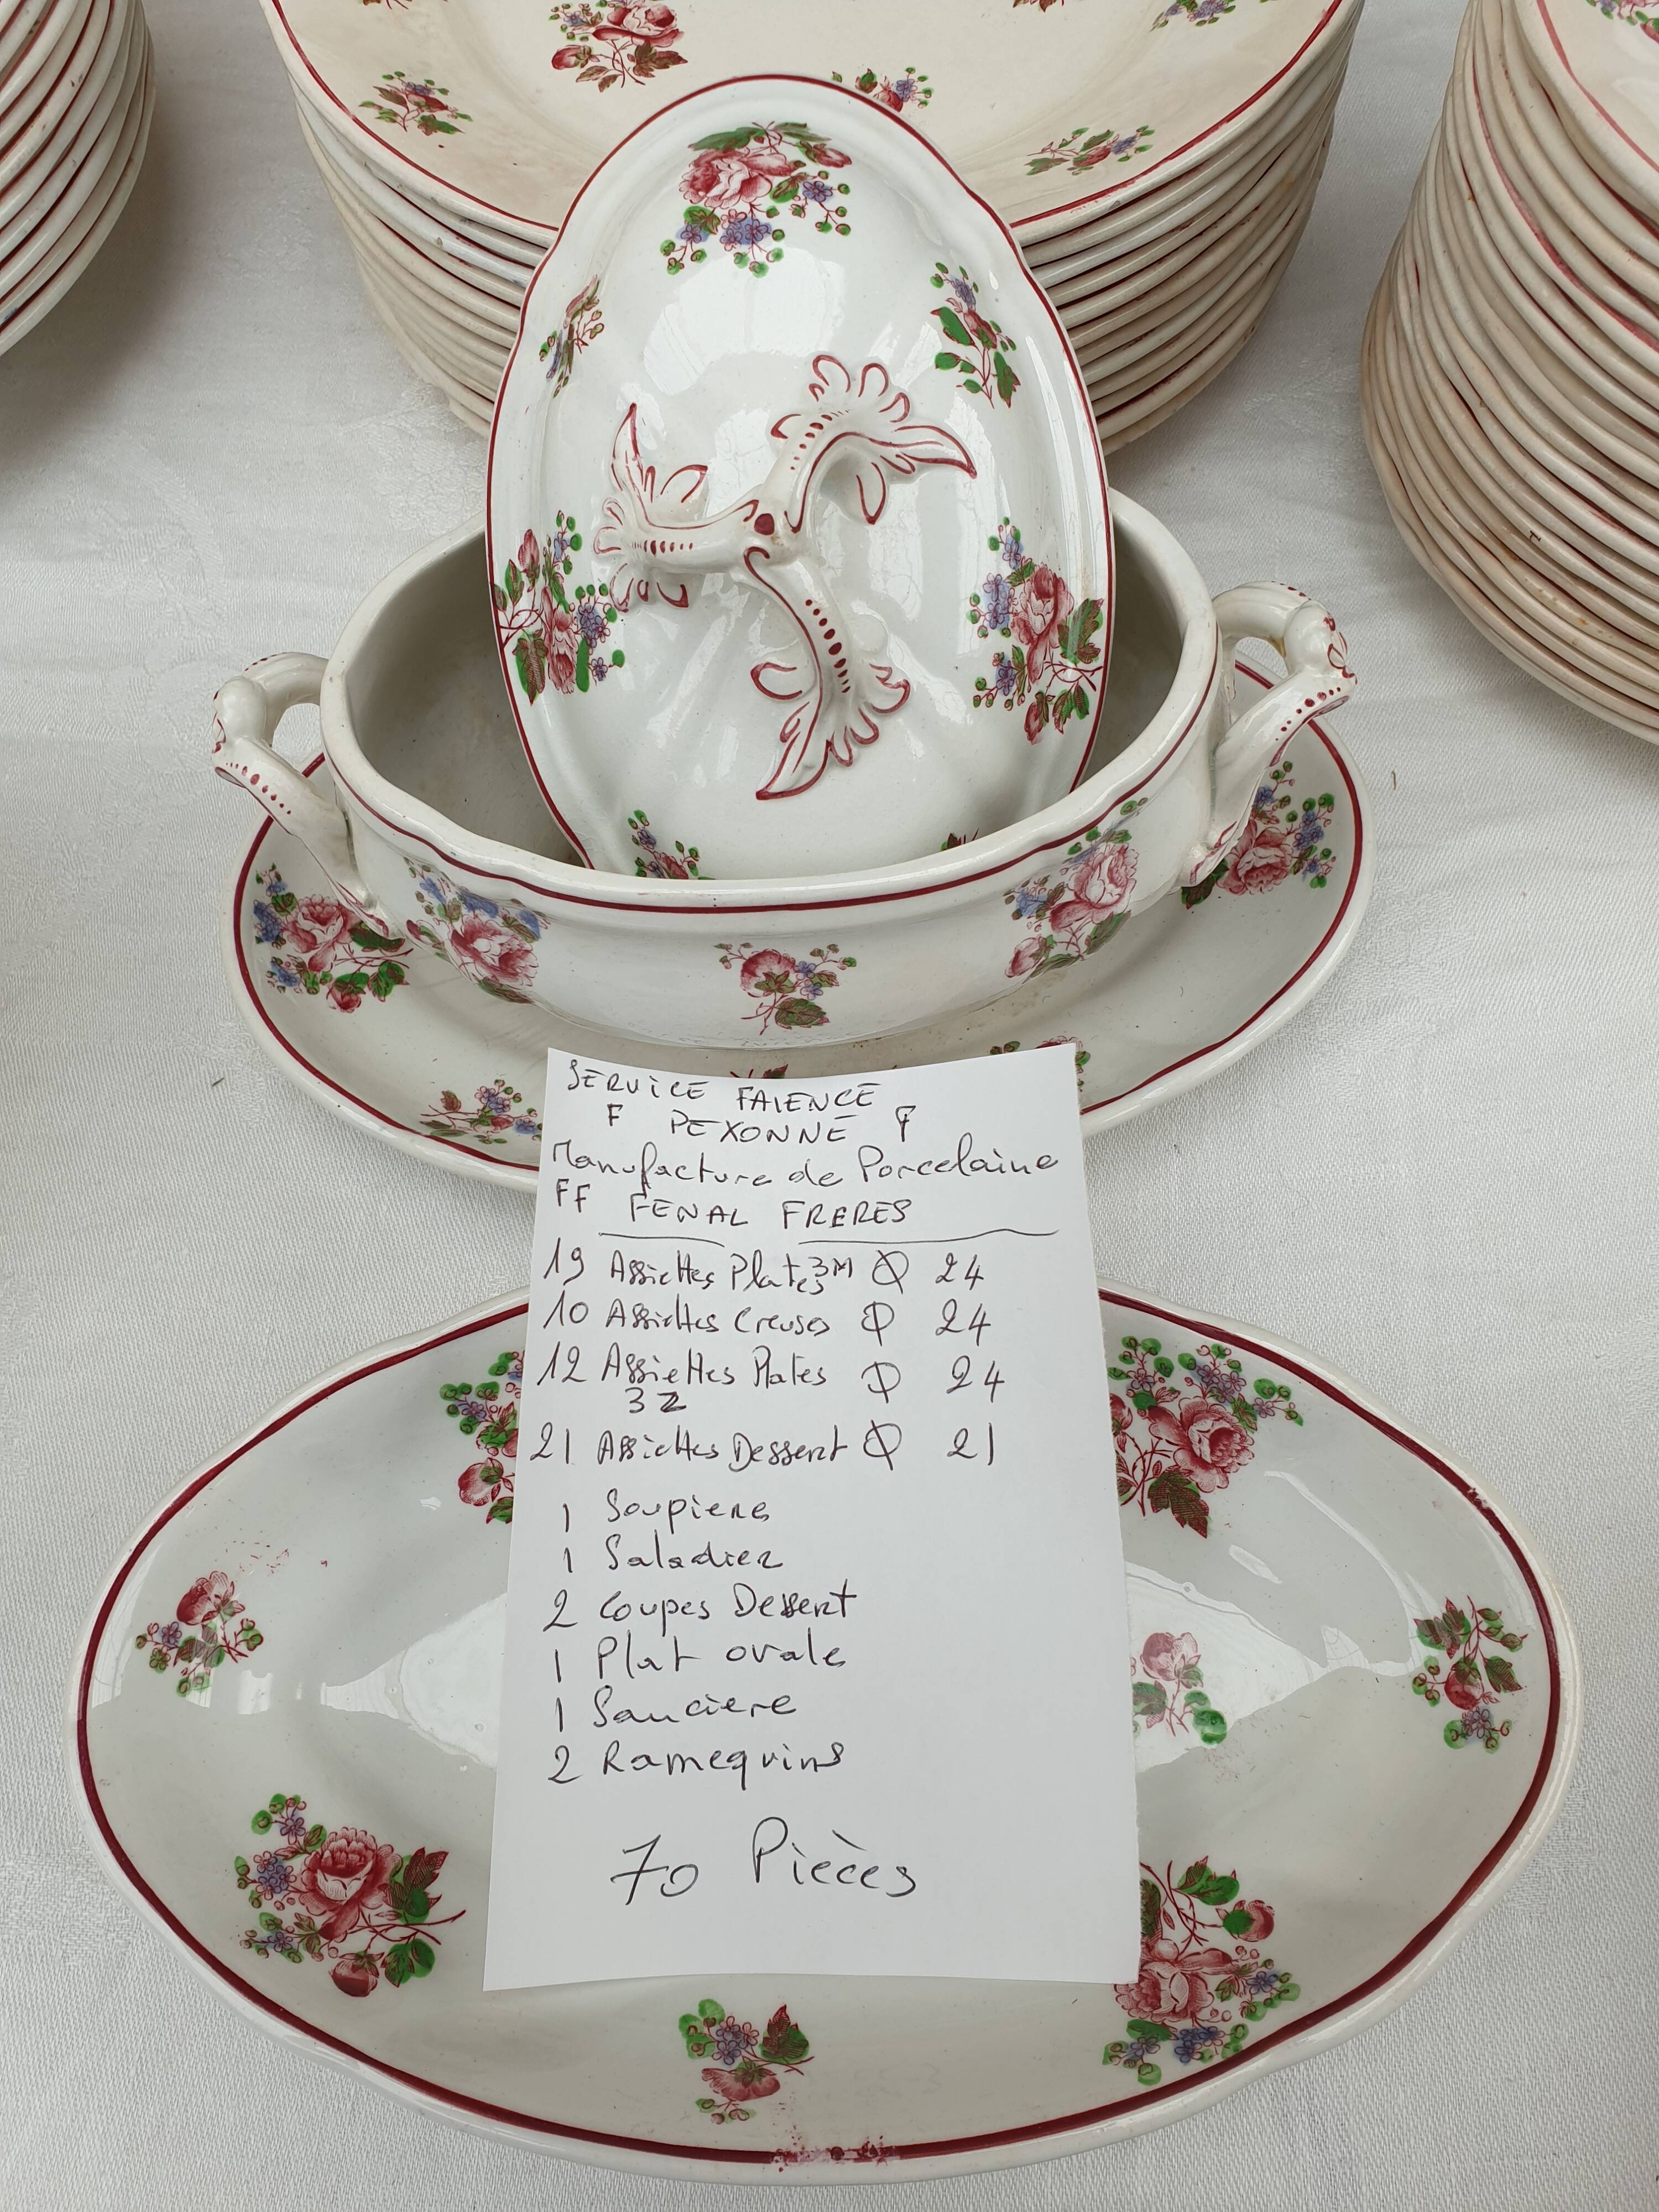 SERVICE FAIENCE
F PEXONNE F
Manufacture de Porcelaine
FF FENAL FRERES
19 Assiettes Plates 3M Ø 24
10 Assiettes Creuses Ø 24
12 Assiettes Plates Ø 24
3Z
21 Assiettes Dessert Ø 21
1 Soupiere
1 Saladier
2 Coupes Dessert
1 Plat ovale
1 Sauciere
2 Ramequins
70 Pièces